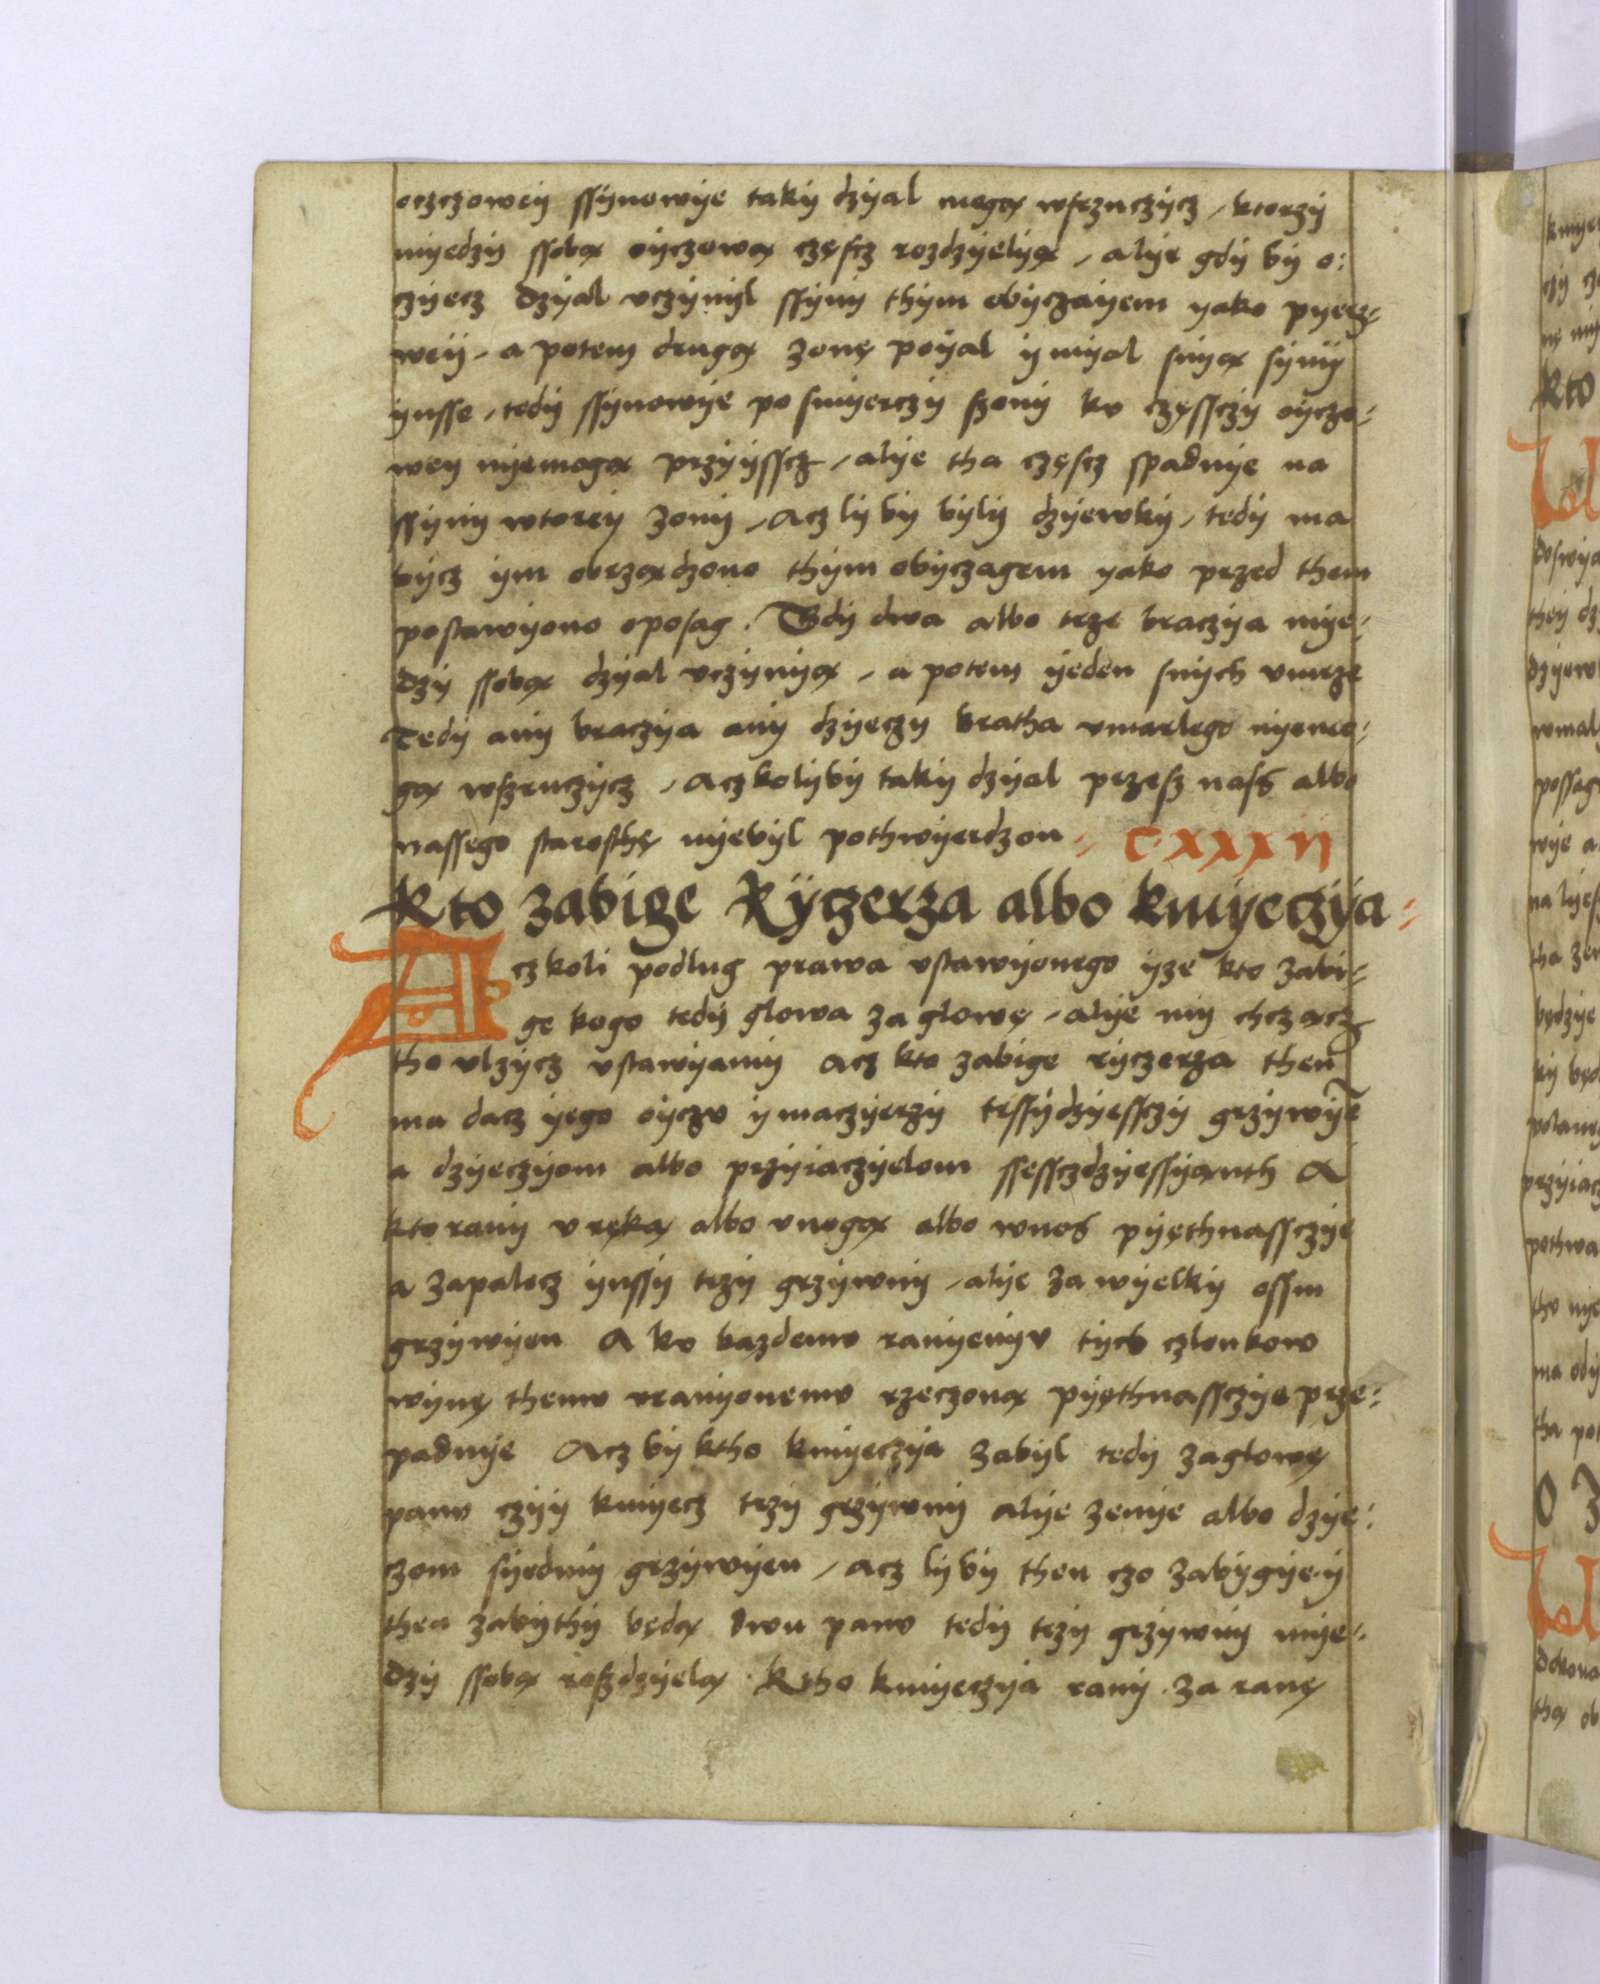 oczczowey ssynowye taky dzyal mogą wsrzuczycz, ktorzy
myedzy ssobą oyczową częscz rozdzyelyą, alye gdy by o:
czyecz dzyal vczynyl ssyny thym obyczayem yako pyerz-
wey, a potem drugą zonę poyal y myal snyą syny
ynsse, tedy ssynowye po smyerczy szony ku częssczy oycze-
wey nyemogą przyyssz, alye tha częscz spadnye na
ssyny wtorey zony, acz ly by byly dzyewky, tedy ma
bycz ym obrządzono thym obyczagem yako przed them
postawyono oposag. Gdy dwa albo trze braczya mye-
dzy ssobą dzyal vczynyą, a potem yeden snych vmrze
Tedy any braczya any dzyeczy bratha vmarlego nyemo-
gą wszruczycz, aczkolyby taky dzyal przesz nass albo
nassego starosthę nyebyl pothwyerdzon CXXXII
Kto zabige Ryczerza albo kmyeczya
Aczkoli podlug prawa vstawyonego yze kto zabi-
ge kogo tedy glowa za glowę, alye my chcząz
tho vlzycz vstawyamy acz kto zabige ryczerza then
ma dacz yego oyczu y maczyerzy trssydzyessczy grzywye
a dzyeczyom albo przyiaczyelom ssessczdzyessyanth A
kto rany v ręką albo vnogą albo wnos pyęthnassczye
a zapalecz ynssy trzy grzywny, alye za wyelky ossm
grzywyen A ku kazdemu ranyenyu tych czlonkow
wynę themu vranyonemu rzeczoną pyęthnassczye prze-
padnye Acz by ktho kmyeczya zabyl tedy zaglowę
panu czyy kmyecz trzy grzywny alye zenye albo dzye-
czom syedmy grzywyen, acz ly by then czo zabygye y
then zabythy będą dwu panu tedy trzy grzywny mye-
dzy ssobą roszdzyelą. Ktho kmyeczya rany. za ranę